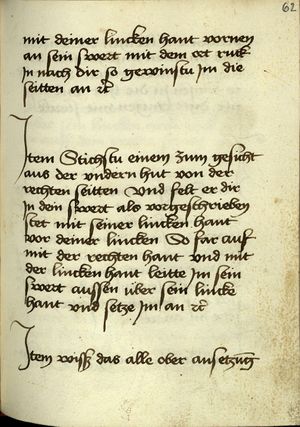 62
mit deiner lincken hant vornen
an sein swert mit dem ort ruck
In nach dir so gewinstu Im die
seitten an rc
Item Stichstu einem zum gesicht
aus der undern hut von der
rechten seitten Und felt er dir
in dein swert als vorgeschrieben
stet mit seiner lincken hant
vor deiner lincken So far auf
mit der rechten hant Und mit
der lincken hant leitte Im sein
swert aussen über sein lincke
hant Und setze Im an rc
Item wiss das alle ober ansetzuḡ